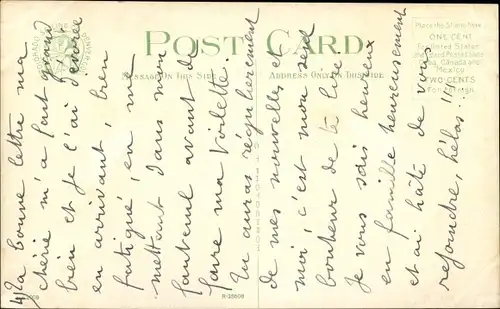 POST CARD
MESSAGE ON THIS SIDE
ADDRESS ONLY ON THIS SIDE
Place the Stamp Here
ONE CENT
For United States
and Island Possessions
Cuba, Canada and
Mexico
TWO CENTS
For Foreign
4) Ta bonne lettre ma
chérie m'a fait grand
bien et je l'ai
en arrivant, bien
fatigué, en me
mettant dans mon
fauteuil avant de
faire ma toilette.
Tu auras régulièrement
de mes nouvelles et
moi, c'est mon seul
bonheur de te lire
Je vous sais heureux
en famille heureusement
et ai hâte de vous
rejoindre, hélas!!
R-35808